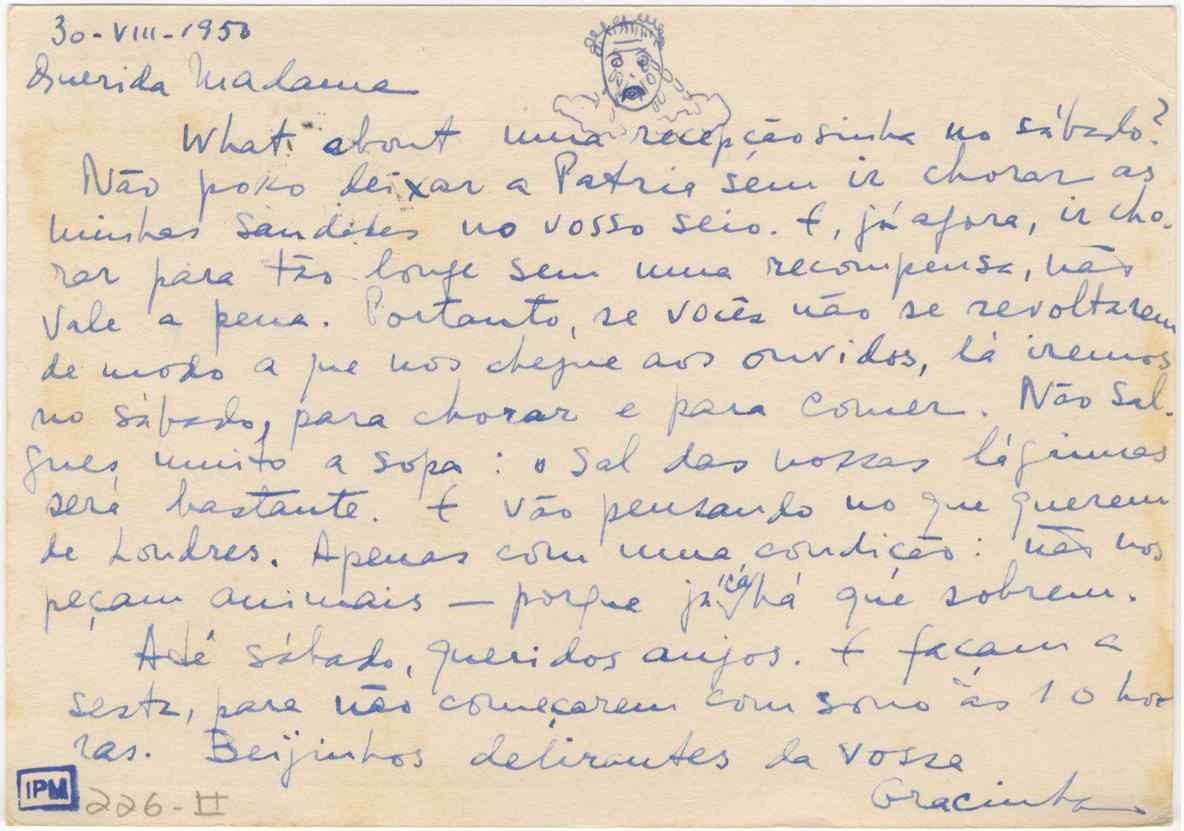 30-VIII-1950
Querida Madama
What about uma recepçãosinha no sábado?
Não posso deixar a Patria sem ir chorar as
minhas saudades no vosso seio. E, já agora, ir cho-
rar para tão longe sem uma recompensa, não
vale a pena. Portanto, se vocês não se revoltarem
de modo a que nos chegue aos ouvidos, lá iremos
no sábado, para chorar e para comer. Não sal-
gues muito a sopa: o sal das nossas lágrimas
será bastante. E vão pensando no que querem
de Londres. Apenas com uma condição: não nos
peçam animais — porque já cá há que sobrem.
Até sábado, queridos anjos. E façam a
sesta, para não começarem com sono às 10 ho-
ras. Beijinhos delirantes da vossa
Gracinha
IPM 226-II